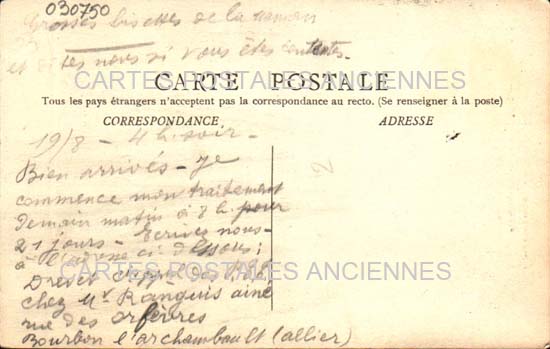 030750
Grosses bisettes de la maman
et dites nous si vous êtes contentes.
CARTE POSTALE
CARTES POSTALES ANCIENNES
Tous les pays étrangers n'acceptent pas la correspondance au recto. (Se renseigner à la poste)
CORRESPONDANCE
ADRESSE
19/8 - 4 h. soir -
Bien arrivés - Je
commence mon traitement
demain matin à 8 h. pour
21 jours - Ecrivez nous -
à l'adresse ci dessous ;
Drevet
CARTES POSTALES ANCIENNES
chez Mr Ranguis ainé
rue des orfèvres
Bourbon l'archambault (allier)
2